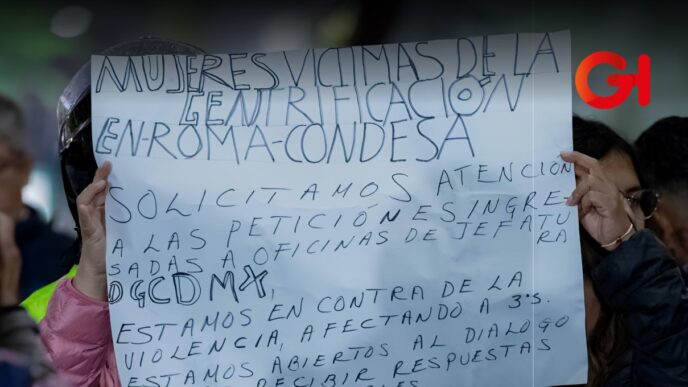 GH
MUJERES VÍCTIMAS DE LA
GENTRIFICACIÓN
EN-ROMA-CONDESA
SOLICITAMOS ATENCIÓN
A LAS PETICIÓNES INGRE
SADAS A OFICINAS DE JEFATU
RA
DGCDMX,
ESTAMOS EN CONTRA DE LA
VIOLENCIA, AFECTANDO A 3'S.
ESTAMOS ABIERTOS AL DIALOGO
RECIBIR RESPUESTAS